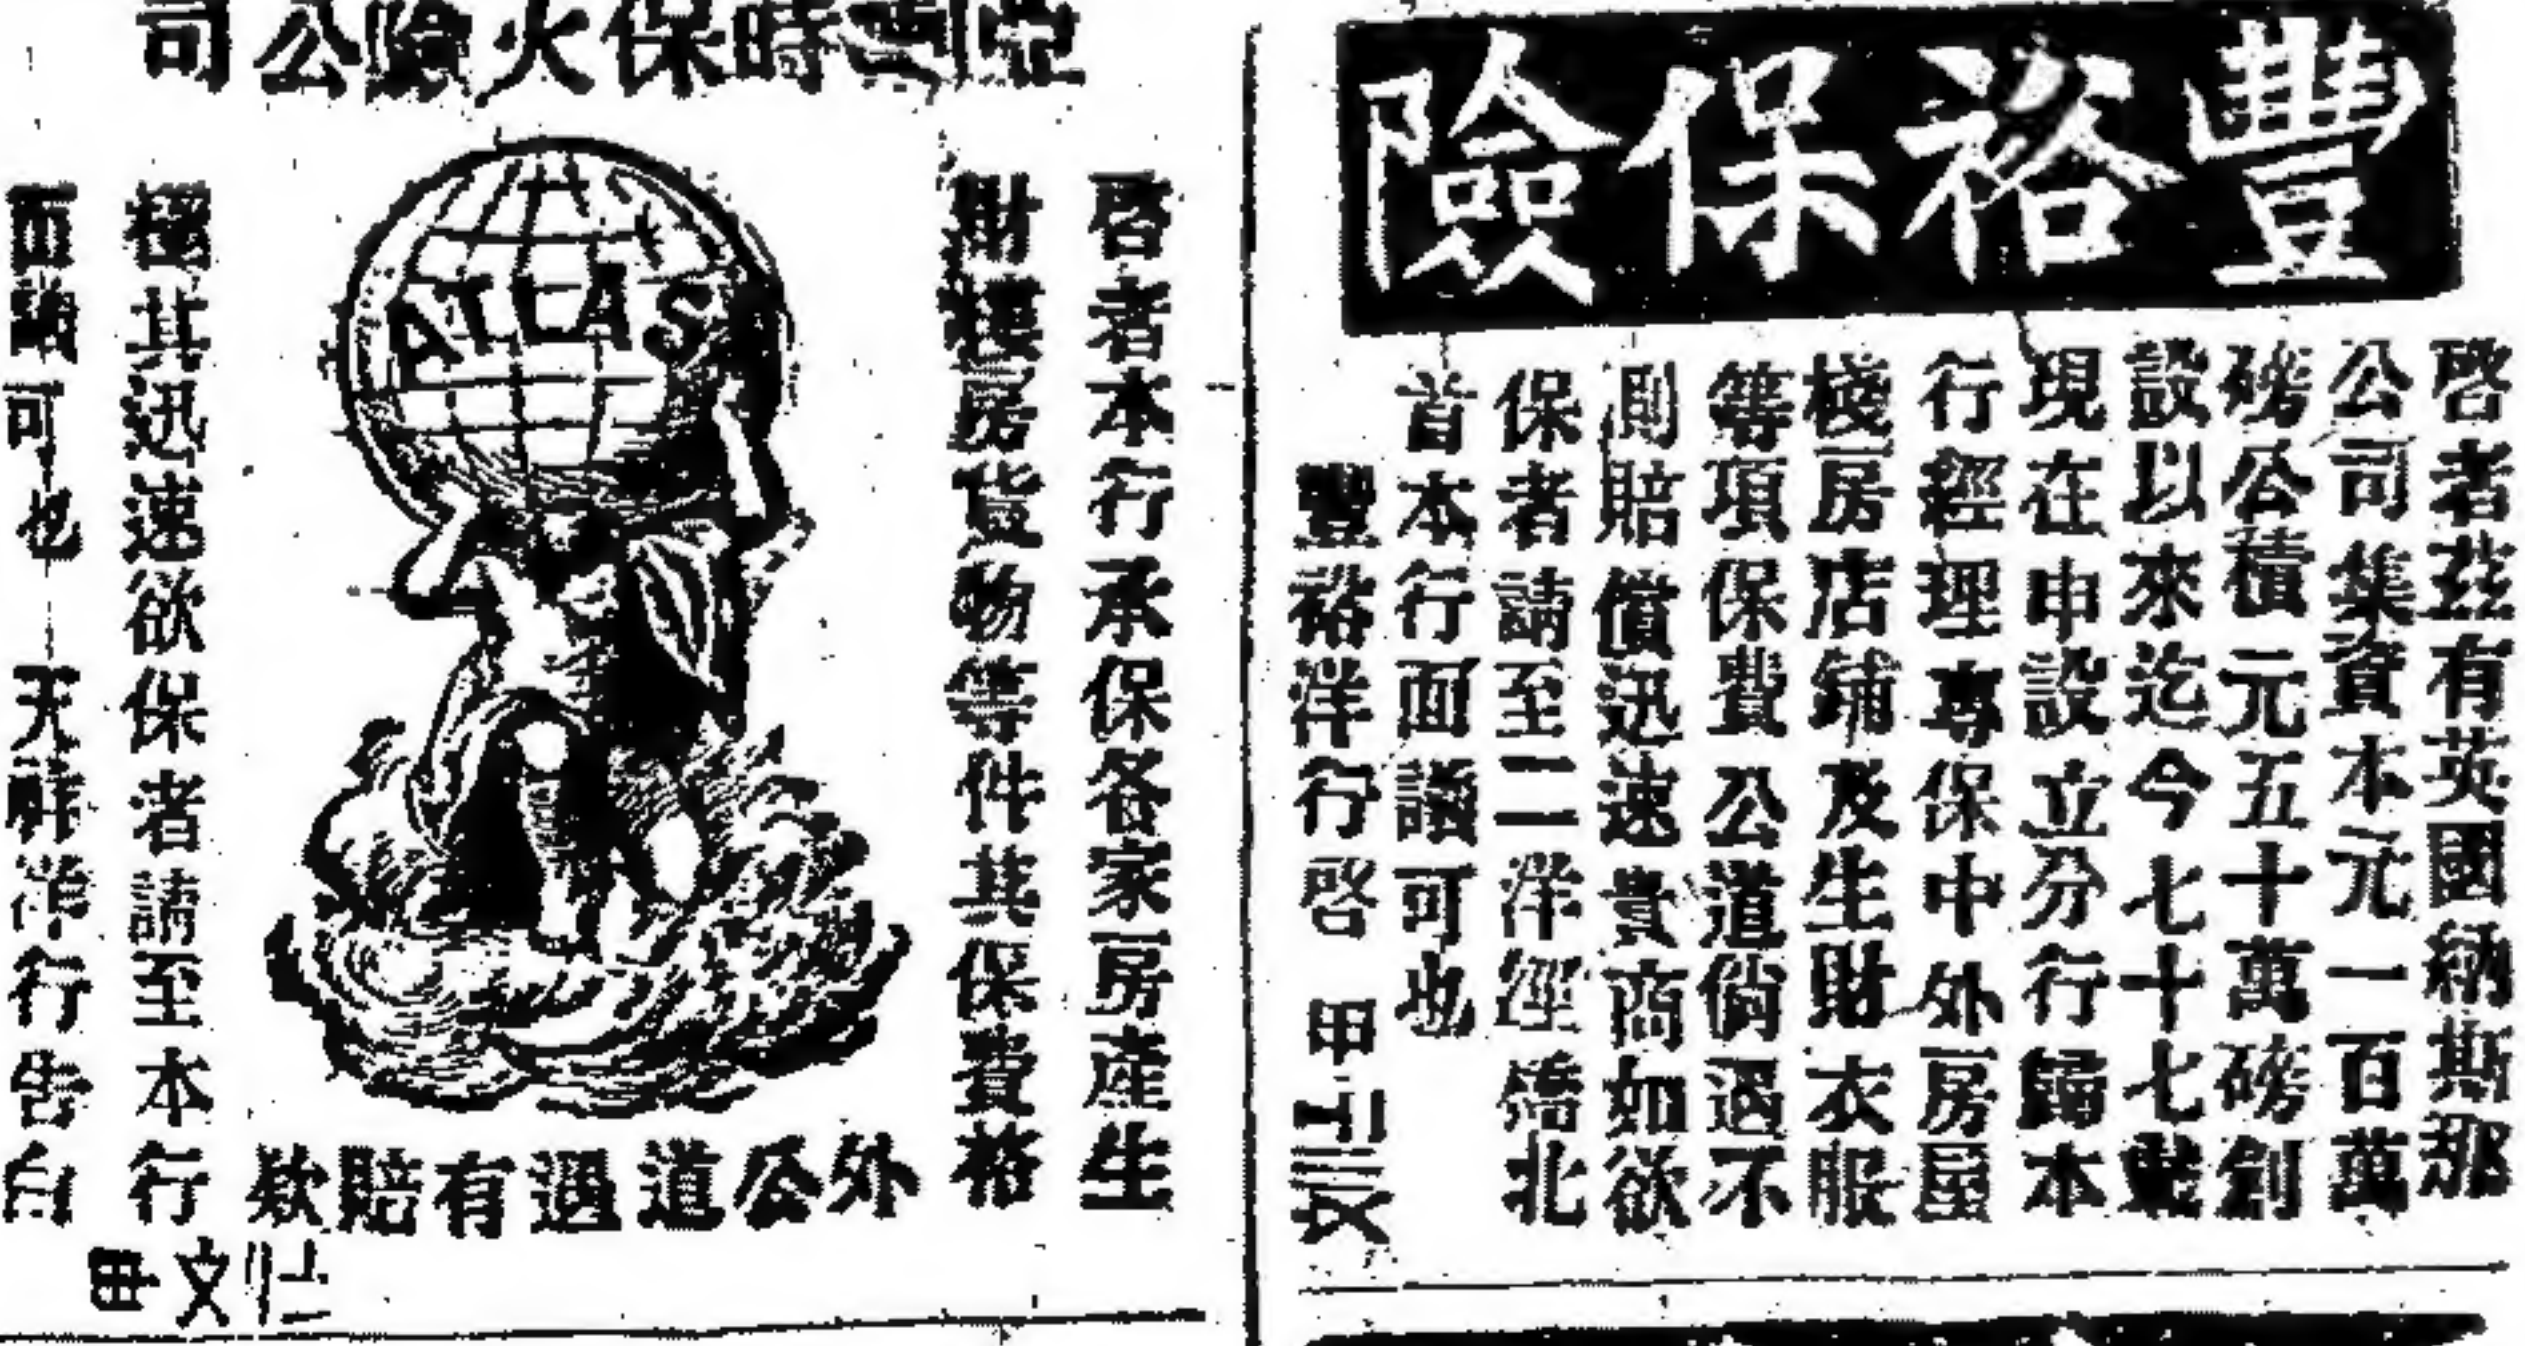 豐裕保險
啓者茲有英國納斯那
公司集資本元一百萬
磅公積元五十萬磅創
設以來迄今七十七載
現在申設立分行歸本
行經理專保中外房屋
棧房店鋪及生財衣服
等項保費公道倘遇不
測賠償迅速貴商如欲
保者請至二洋涇橋北
首本行面議可也
豐裕洋行啓 甲
時保火險公司
啓者本行承保各家房產生
財棧房貨物等件其保費格
外公道遇有賠欵
ATLAS
極其迅速欲保者請至本行
面議可也 天祥洋行告白